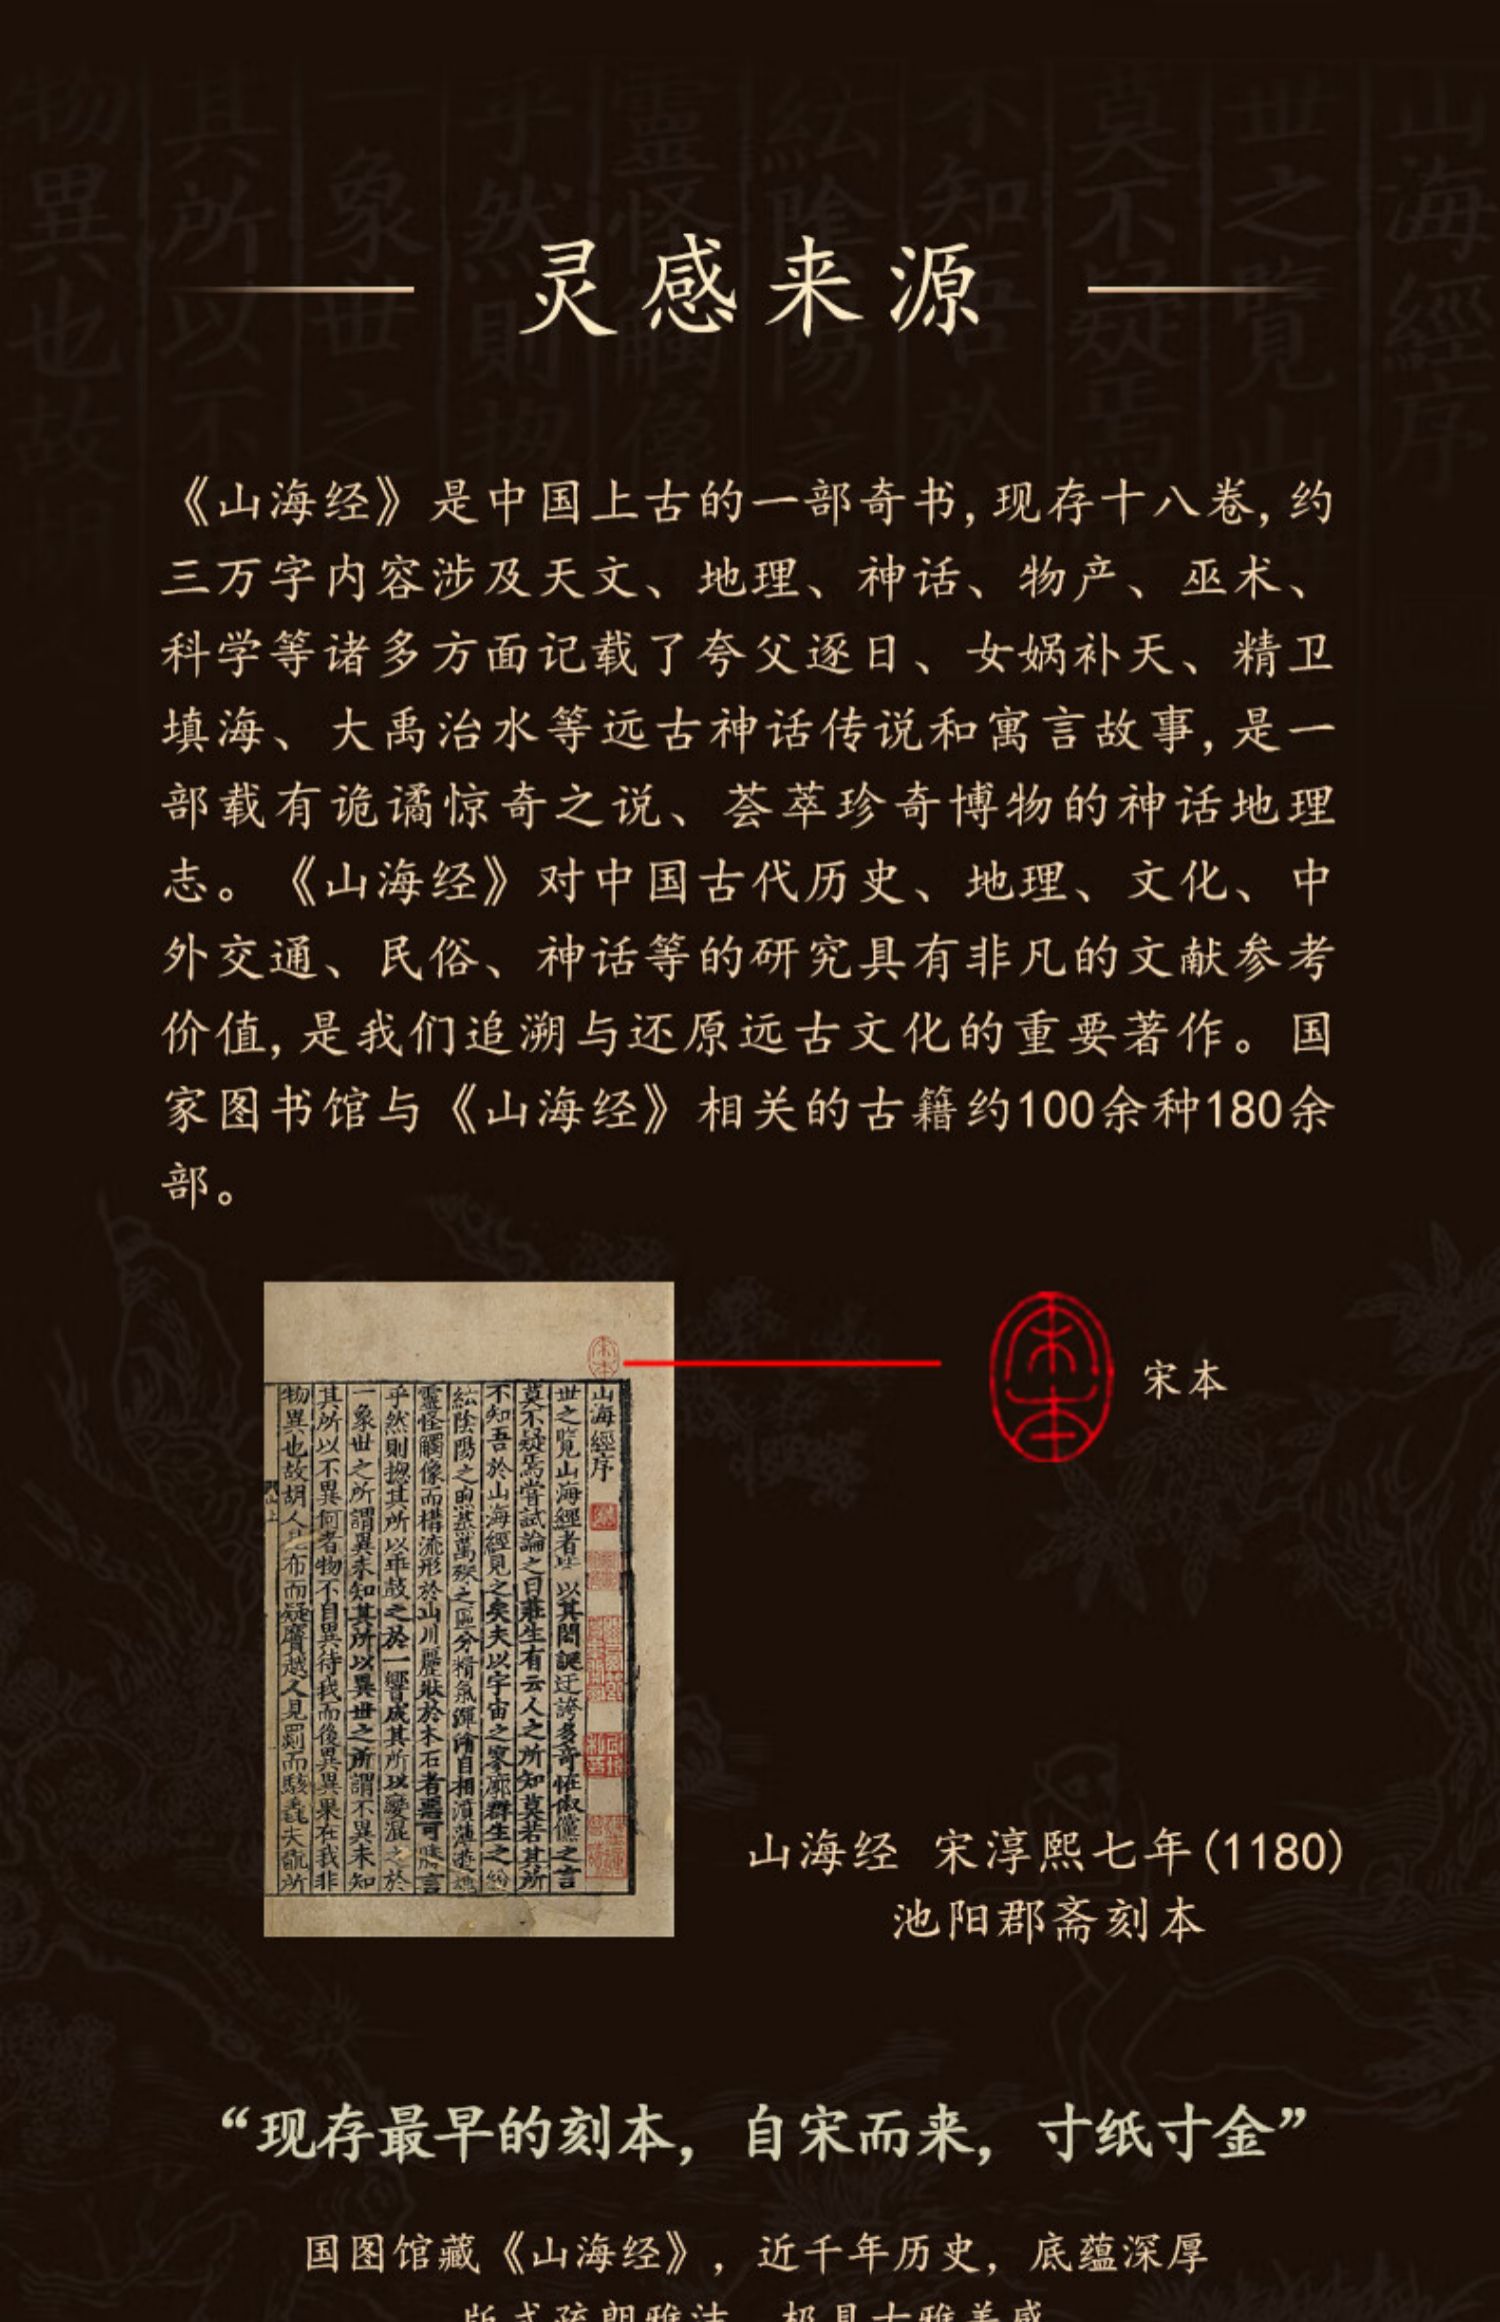 灵感来源
《山海经》是中国上古的一部奇书,现存十八卷,约
三万字内容涉及天文、地理、神话、物产、巫术、
科学等诸多方面记载了夸父逐日、女娲补天、精卫
填海、大禹治水等远古神话传说和寓言故事,是一
部载有诡谲惊奇之说、荟萃珍奇博物的神话地理
志。《山海经》对中国古代历史、地理、文化、中
外交通、民俗、神话等的研究具有非凡的文献参考
价值,是我们追溯与还原远古文化的重要著作。国
家图书馆与《山海经》相关的古籍约100余种180余
部。
宋本
山海經序
世之覽山海經者皆以其閎誕迂誇多奇怪俶儻之言
莫不疑焉嘗試論之曰莊生有云人之所知莫若其所
不知吾於山海經見之矣夫以宇宙之寥廓群生之紛
紜陰陽之煦蒸萬殊之區分精氣渾淆自相濆薄遊魂
靈怪觸像而構流形於山川麗狀於木石者惡可勝言
乎然則揔其所以乖鼓之於一響成其所以變混之於
一象世之所謂異未知其所以異世之所謂不異未知
其所以不異何者物不自異待我而後異異果在我非
物異也故胡人見布而疑黂越人見罽而駭毳夫翫所
山海经 宋淳熙七年(1180)
池阳郡斋刻本
“现存最早的刻本，自宋而来，寸纸寸金”
国图馆藏《山海经》，近千年历史，底蕴深厚
版式疏朗雅洁，极具古雅美感